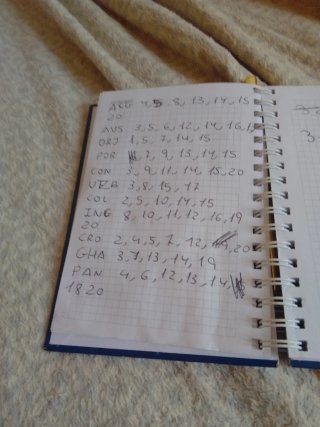 ARG 4, 5, 8, 13, 14, 15
20
AUS 3, 5, 6, 12, 14, 16, 19
DRJ 1, 5, 7, 14, 15
POR 7, 9, 13, 14, 15
CON 3, 9, 11, 14, 15, 20
UZB 3, 8, 15, 17
COL 2, 5, 10, 14, 15
ING 8, 10, 11, 12, 16, 19
20
CRO 2, 4, 5, 7, 12, 20
GHA 3, 7, 13, 14, 19
PAN 4, 6, 12, 13, 14,
18 20